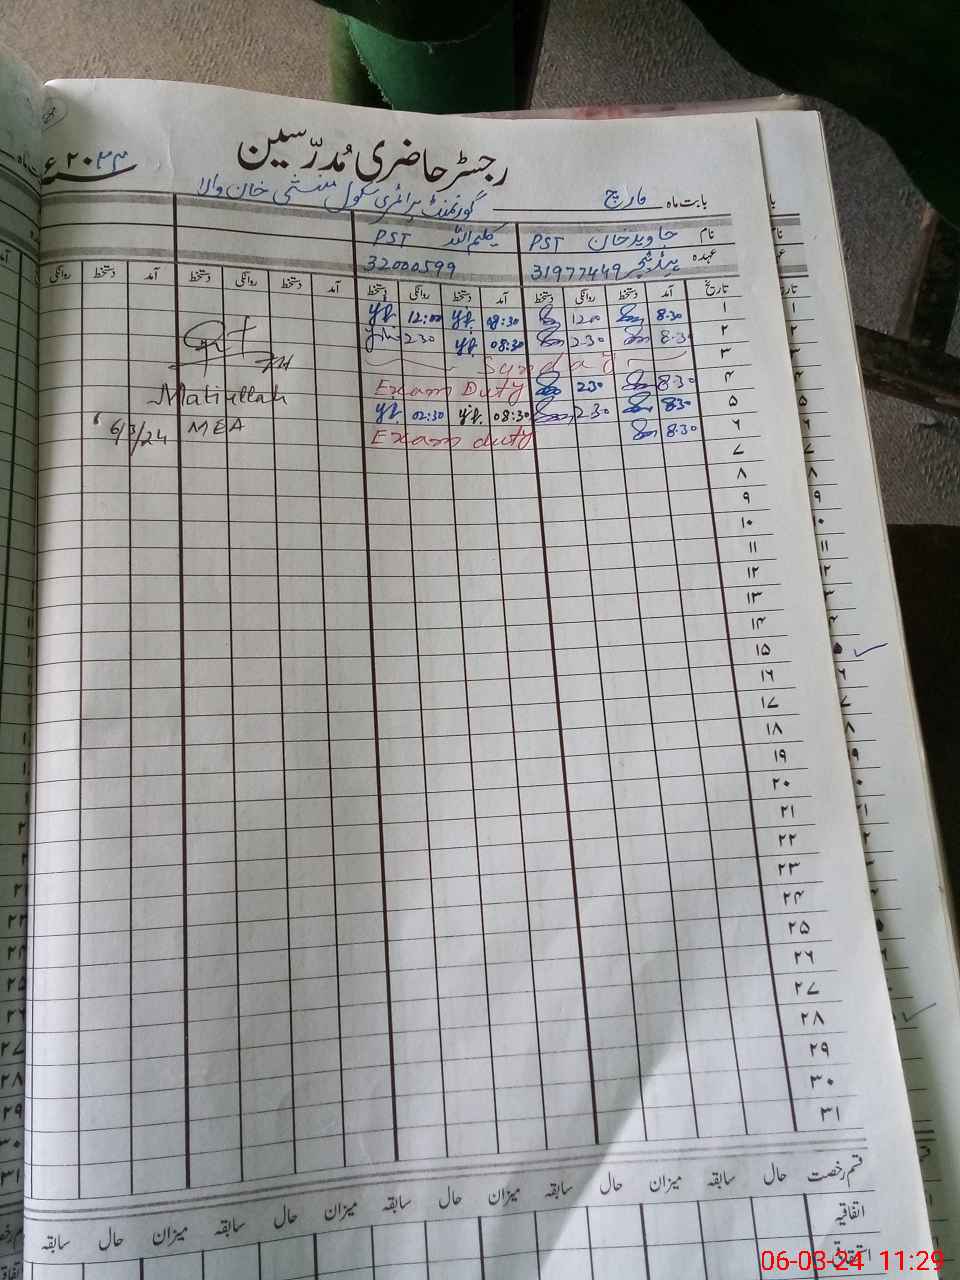 رجسٹر حاضری مُدرّسین
۲۰۲۴ء
بابت ماہ مارچ گورنمنٹ پرائمری سکول منشی خان والا
نام جاوید خان PST کلیم اللہ PST
عہدہ ہیڈ ٹیچر 31977449 32000599
تاریخ آمد دستخط روانگی دستخط آمد دستخط روانگی دستخط آمد دستخط روانگی دستخط آمد دستخط روانگی
۱ 8.30 12.00 08:30 12:00
۲ 8.30 2.30 08:30 2.30
۳ Sunday
۴ 8.30 2.30 Exam Duty
۵ 8.30 2.30 08:30 02:30
۶ 8.30 Exam duty
Matiullah
MEA
6/3/24
۷
۸
۹
۱۰
۱۱
۱۲
۱۳
۱۴
۱۵
۱۶
۱۷
۱۸
۱۹
۲۰
۲۱
۲۲
۲۳
۲۴
۲۵
۲۶
۲۷
۲۸
۲۹
۳۰
۳۱
قسم رخصت حال سابقہ میزان حال سابقہ میزان حال سابقہ میزان حال سابقہ میزان حال سابقہ
اتفاقیہ
استحقاقی
06-03-24 11:29